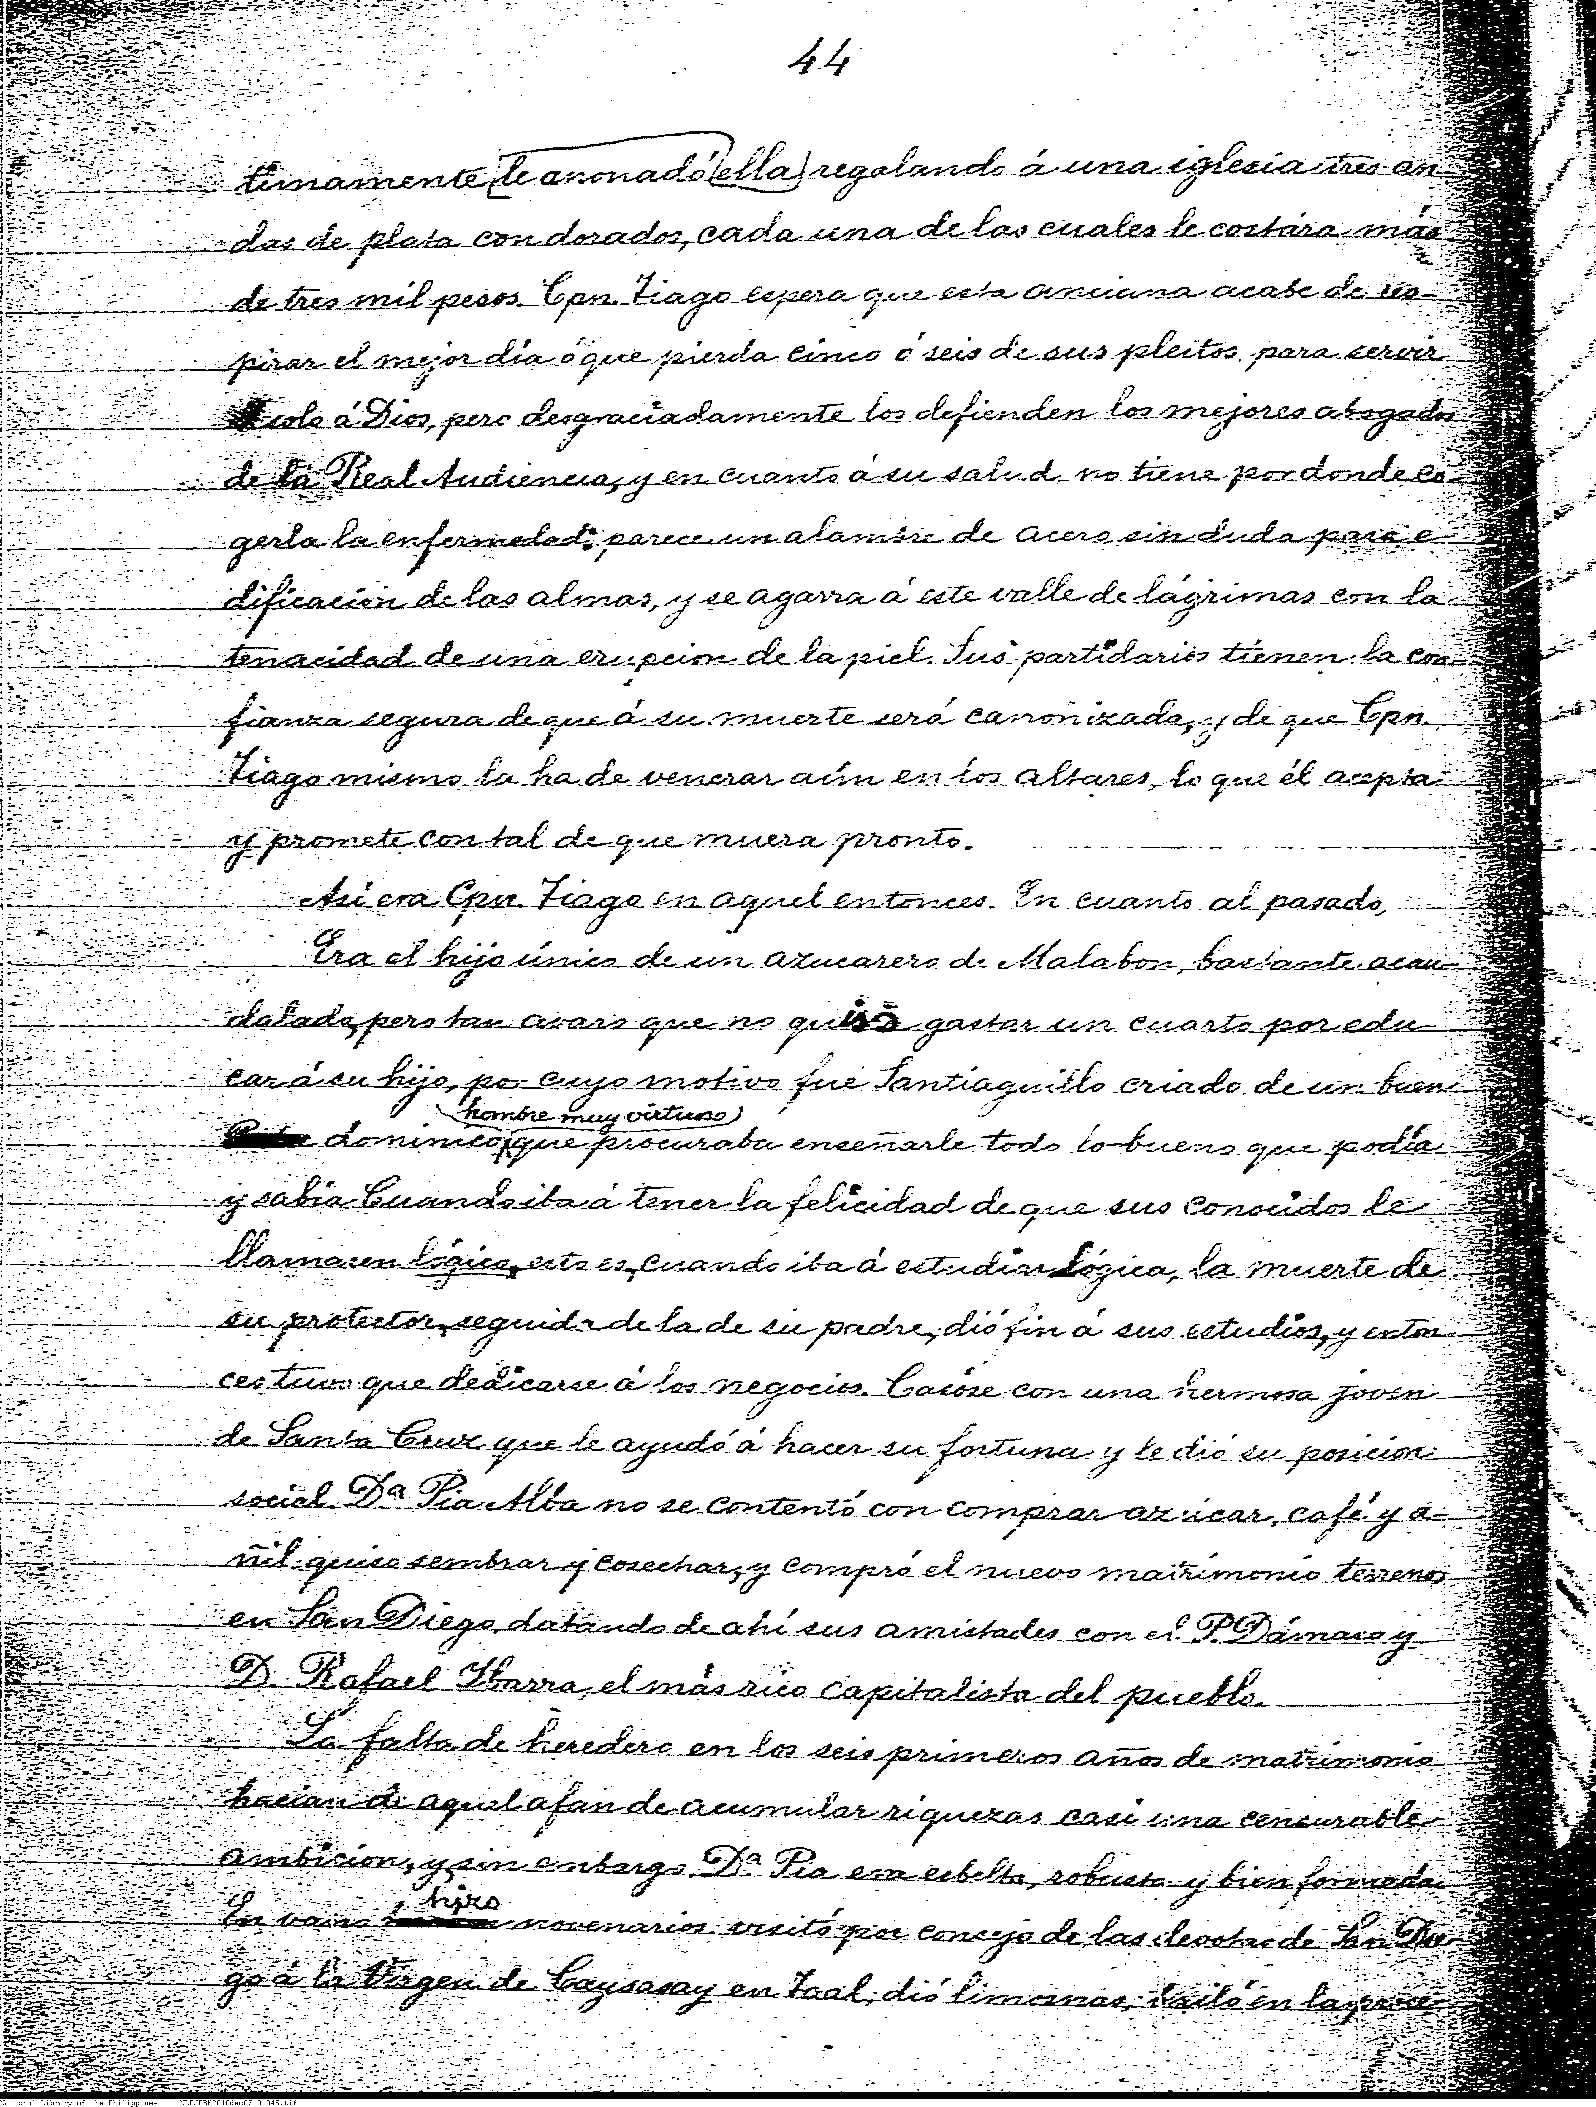 44
timamente le anonadó ella regalando á una iglesia tres an-
das de plata con dorados, cada una de las cuales le costára más
de tres mil pesos. Cpn. Tiago espera que esta anciana acabe de res-
pirar el mejor día ó que pierda cinco ó seis de sus pleitos para servir
solo á Dios, pero desgraciadamente los defienden los mejores abogados
de la Real Audiencia, y en cuanto á su salud no tiene por donde co-
gerla la enfermedad: parece un alambre de acero sin duda para e-
dificacion de las almas, y se agarra á este valle de lágrimas con la
tenacidad de una erupcion de la piel. Sus partidarios tienen la con-
fianza segura de que á su muerte será canonizada, y de que Cpn.
Tiago mismo la ha de venerar aún en los altares, lo que él acepta
y promete con tal de que muera pronto.
Así era Cpn. Tiago en aquel entonces. En cuanto al pasado,
Era el hijo único de un azucarero de Malabon, bastante acau-
dalado, pero tan avaro que no quiso gastar un cuarto por edu-
car á su hijo, por cuyo motivo fue Santiaguillo criado de un buen
hombre muy virtuoso
dominico, que procuraba enseñarle todo lo bueno que podía
y sabía. Cuando iba á tener la felicidad de que sus conocidos le
llamasen lógico, esto es, cuando iba á estudiar Lógica, la muerte de
su protector, seguida de la de su padre, dió fin á sus estudios, y enton
ces tuvo que dedicarse á los negocios. Casóse con una hermosa joven
de Santa Cruz que le ayudó á hacer su fortuna y le dió su posicion
social. Dª Pia Alba no se contentó con comprar azúcar, café y a-
ñil: quiso sembrar y cosechar, y compró el nuevo matrimonio terrenos
en San Diego, datando de ahí sus amistades con el P. Dámaso y
D. Rafael Ibarra, el más rico capitalista del pueblo.
La falta de heredero en los seis primeros años de matrimonio
hacían de aquel afan de acumular riquezas casi una censurable
ambicion, y sin embargo Dª Pia era esbelta, robusta y bien formada.
hizo
En vano novenarios visitó por consejo de las devotas de San Die
go á la Virgen de Caysasay en Taal; dió limosnas, bailó en la proce-